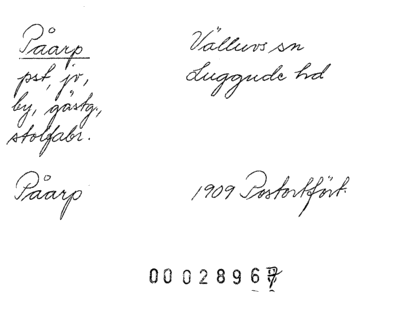 Påarp Välluvs sn
pst, jv, Luggude hd
by, gästg.,
stolfabr.
Påarp 1909 Postortfört.
0002896